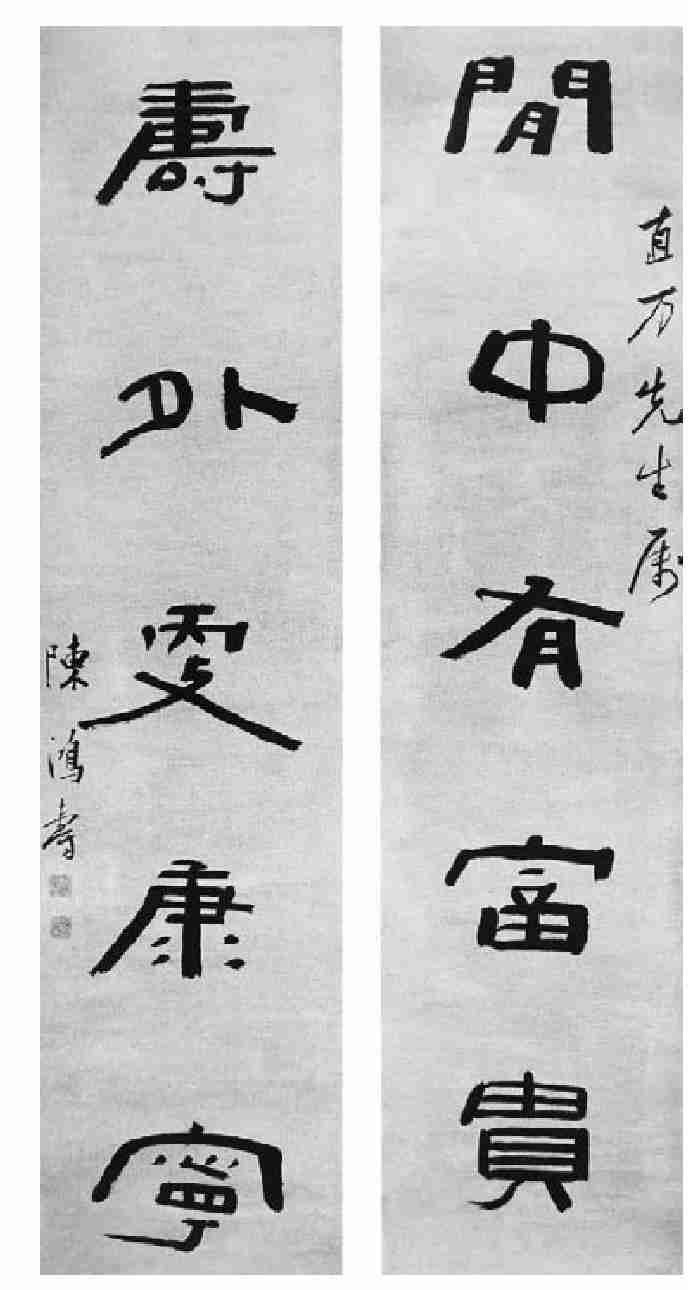 直方先生属
閒中有富貴
壽外更康寧
陳鴻壽